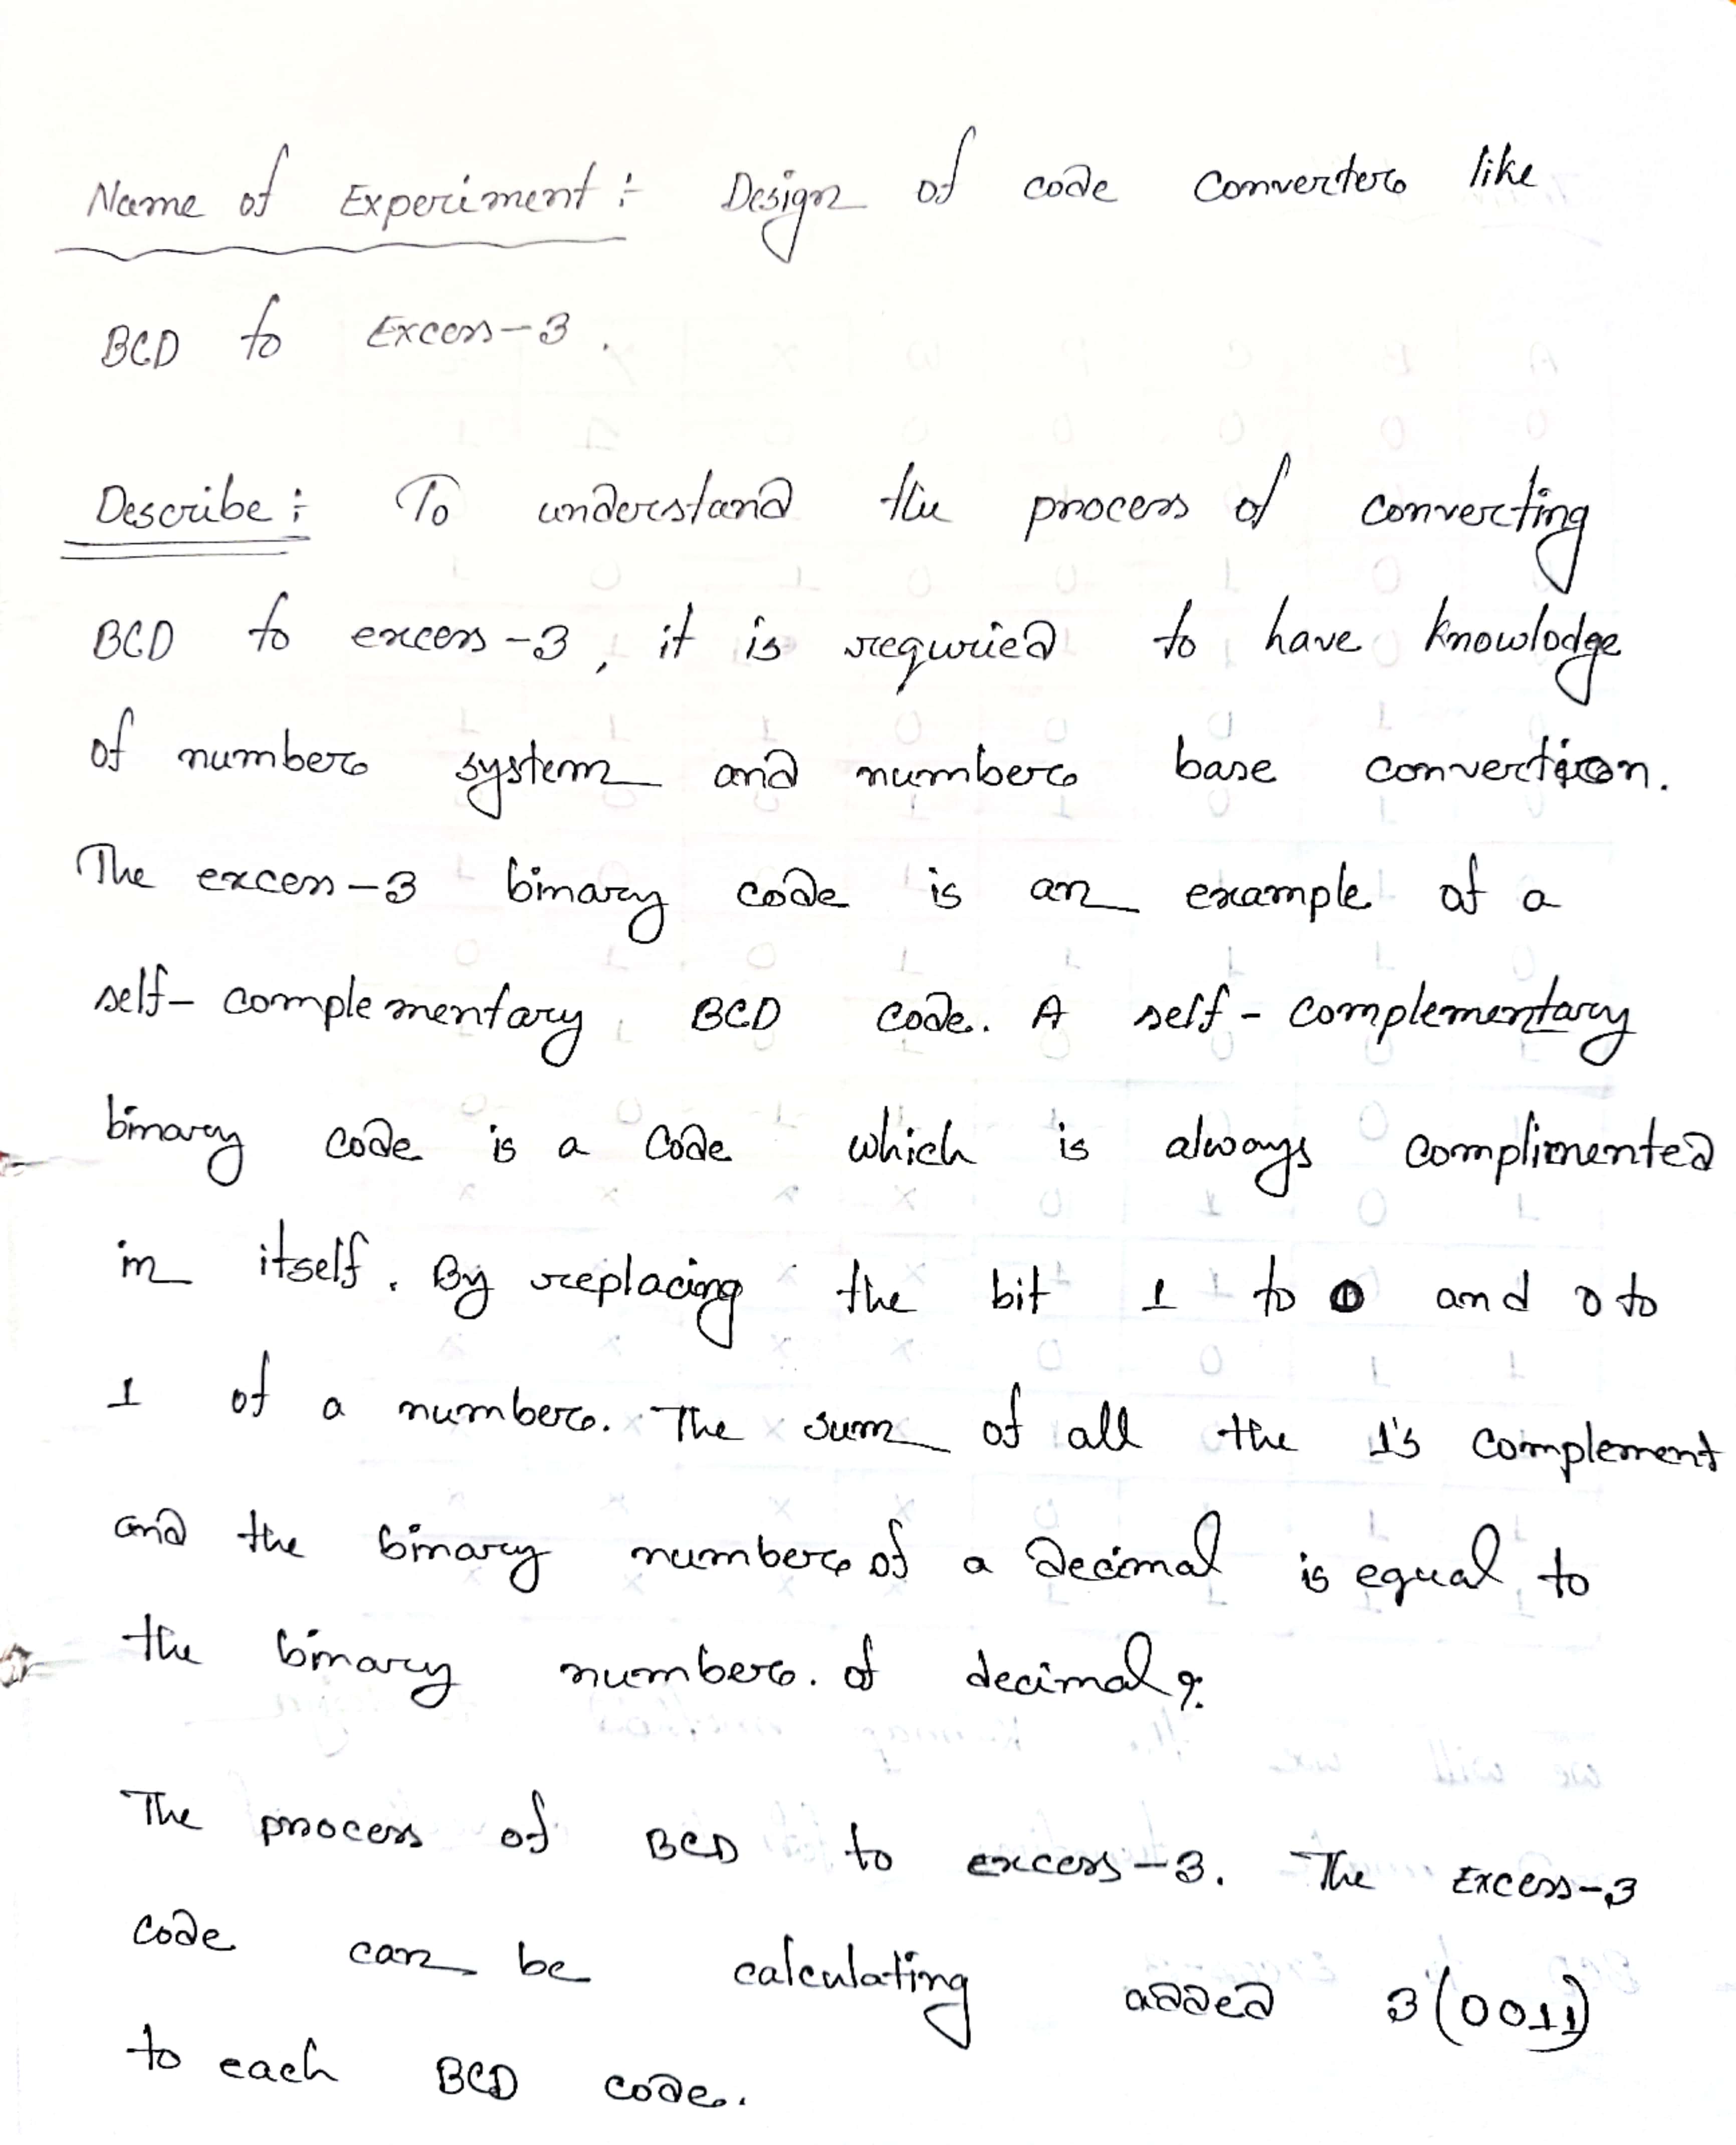 Name of Experiment : Design of code converter like
BCD to Excess-3.
Describe : To understand the process of converting
BCD to excess-3, it is requried to have knowlodge
of number system and number base convertion.
The excess-3 binary code is an example of a
self-complementary BCD code. A self-complementary
binary code is a code which is always complimented
in itself. By replacing the bit 1 to 0 and 0 to
1 of a number. The sum of all the 1's complement
and the binary number of a decimal is equal to
the binary number. of decimal 9.
The process of BCD to excess-3. The Excess-3
code can be calculating added 3(0011)
to each BCD code.